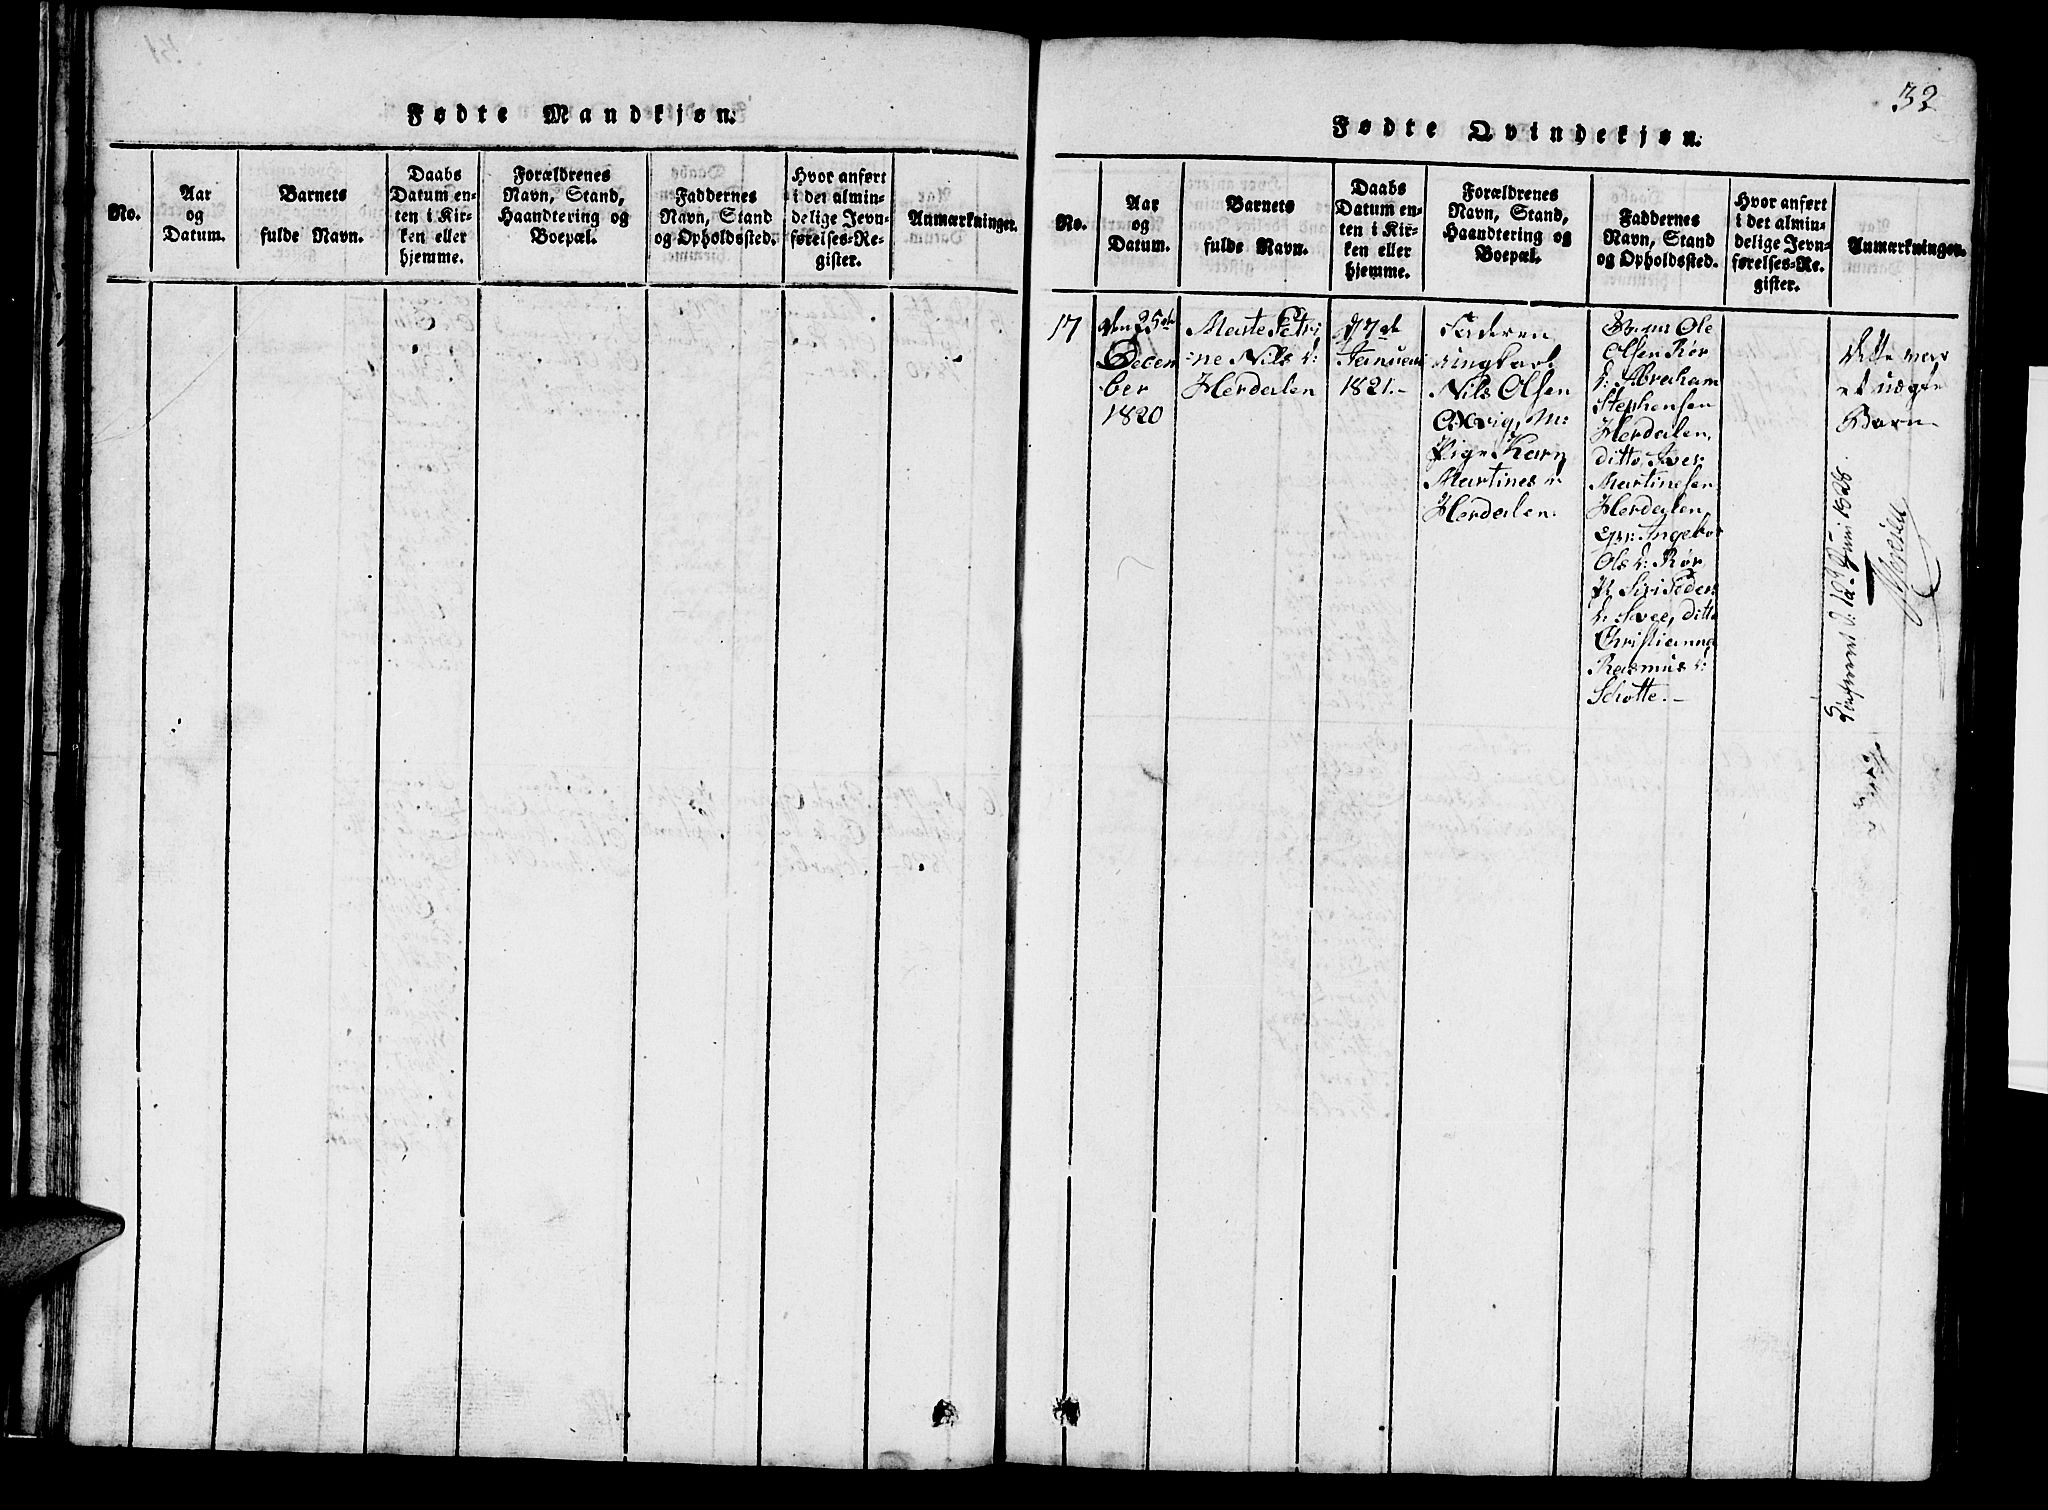 32
Fødte Mandkjøn.
No.
Aar
og
Datum.
Barnets
fulde Navn.
Daabs
Datum en-
ten i Kir-
ken eller
hjemme.
Forældrenes
Navn, Stand,
Haandtering og
Boepæl.
Faddernes
Navn, Stand
og Opholdssted.
Hvor anført
i det almin-
delige Jevn-
førelses-Re-
gister.
Anmærkninger.
Fødte Qvindekjøn.
No.
Aar
og
Datum.
Barnets
fulde Navn.
Daabs
Datum en-
ten i Kir-
ken eller
hjemme.
Forældrenes
Navn, Stand,
Haandtering og
Boepæl.
Faddernes
Navn, Stand
og Opholdssted.
Hvor anført
i det almin-
delige Jevn-
førelses-Re-
gister.
Anmærkninger.
17
den 25de
Decem
ber
1820
Marte Petri
ne Nils d:
Herdalen
Januari
1821.-
Faderen
ungkarl
Nils Olsen
M:
Pige Kari
Martines d:
Herdalen.
Ole
Olsen Rør
Abraham
Stephensen
Herdalen,
ditto, Iver
Martinesen
Herdalen,
Ingebor
Ols d: Rør
P. Siri Peders
d: Svee, ditto
Christianna
Rasmus d:
Schotte.-
Dette var
et uægte
Barn
Juni 1828.